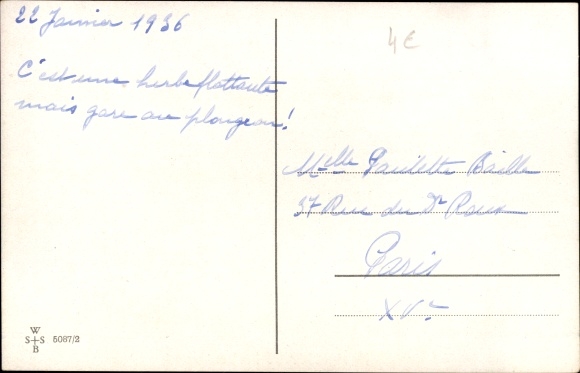 22 Janvier 1936
4€
C'est une herbe flottante
mais gare au plongeon!
Melle Paulette Baille
37 Rue du Dr Roux
Paris
XVe
W
S+S
B
5087/2